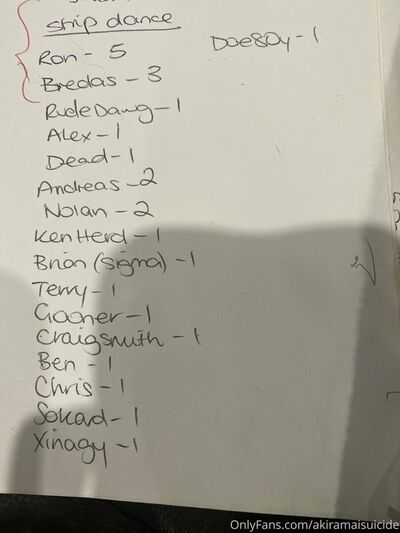 strip dance
Ron - 5
Bredas - 3
RudeDawg - 1
Alex - 1
Dead - 1
Andreas - 2
Nolan - 2
KenHerd - 1
Brian (sigma) - 1
Terry - 1
Craigsmith - 1
Ben - 1
Chris - 1
Sokad - 1
Xinagy - 1
DoeBoy - 1
OnlyFans.com/akiramaisuicide